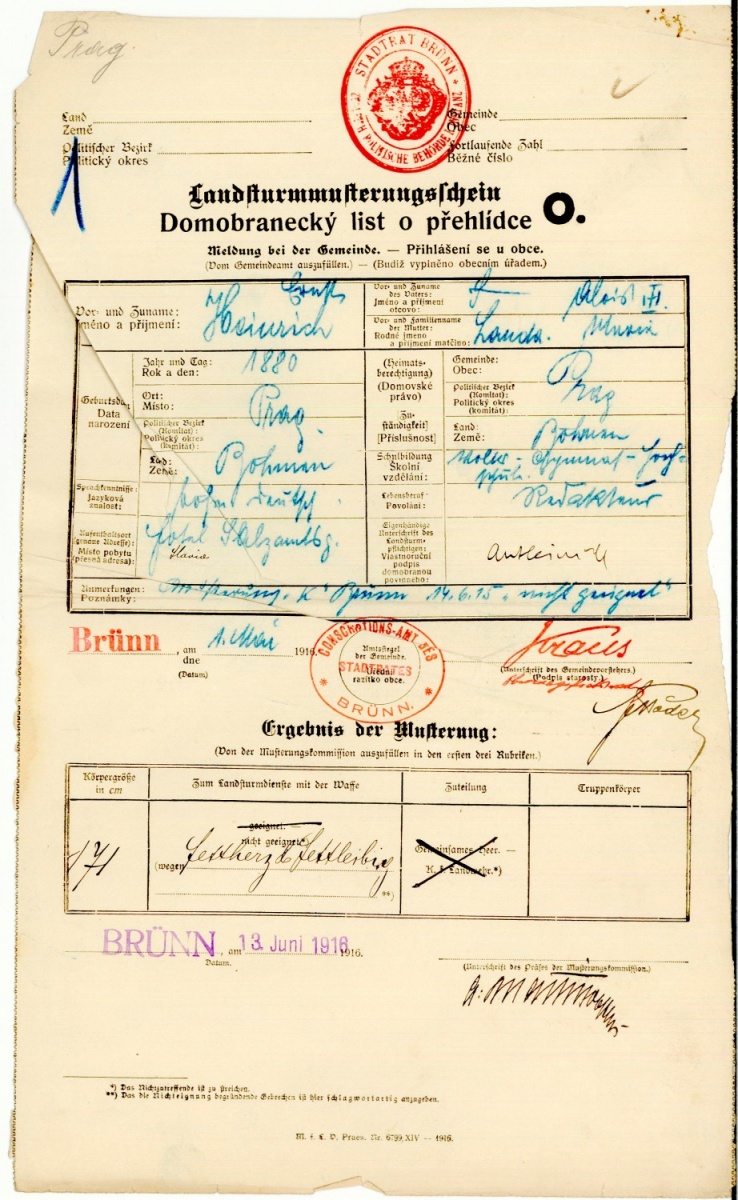 Prag.
STADTRAT BRÜNN
POLITISCHE BEHÖRDE
Land
Země
Politischer Bezirk
Politický okres
Gemeinde
Obec
Fortlaufende Zahl
Běžné číslo
1
Landsturmmusterungsschein
Domobranecký list o přehlídce
O.
Meldung bei der Gemeinde. — Přihlášení se u obce.
(Vom Gemeindeamt auszufüllen.) — (Budiž vyplněno obecním úřadem.)
Vor- und Zuname:
Jméno a příjmení:
Ernst
Heinrich
Vor- und Zuname
des Vaters:
Jméno a příjmení
otcovo:
Alois
Vor- und Familienname
der Mutter:
Rodné jmeno
a příjmení matčino:
Landa. Maria
Geburtsdaten
Data
narození
Jahr und Tag:
Rok a den:
1880
Ort:
Místo:
Prag.
Politischer Bezirk
(Komitat):
Politický okres
(komitát):
Land:
Země:
Böhmen
(Heimats-
berechtigung)
(Domovské
právo)
[Zu-
ständigkeit]
[Příslušnost]
Gemeinde:
Obec:
Prag
Politischer Bezirk
(Komitat):
Politický okres
(komitát):
Land:
Země:
Böhmen
Sprachkenntnisse:
Jazyková
znalost:
böhm. deutsch.
Schulbildung
Školní
vzdělání:
Volks- Gymnas- Hoch-
schule.
Lebensberuf:
Povolání:
Redakteur
Aufenthaltsort
(genaue Adresse):
Místo pobytu
(přesná adresa):
Hotel Salzamtsg.
Slavia
Eigenhändige
Unterschrift des
Landsturm-
pflichtigen:
Vlastnoruční
podpis
domobranou
povinného:
Anmerkungen:
Poznámky:
Musterung "K" Brünn 14.6.15 "nicht geeignet"
Brünn, am
dne
1. Mai
1916.
(Datum)
CONSCRIPTIONS-AMT DES
STADTRATES
BRÜNN.
Amtssiegel
der Gemeinde.
Úřední
razítko obce.
Kraus
(Unterschrift des Gemeindevorstehers.)
(Podpis starosty.)
Ergebnis der Musterung:
(Von der Musterungskommission auszufüllen in den ersten drei Rubriken.)
Körpergröße
in cm
Zum Landsturmdienste mit der Waffe
Zuteilung
Truppenkörper
171
geeignet. —
nicht geeignet*)
(wegen Fettherz & Fettleibig
**)
Gemeinsames Heer. —
K. k. Landwehr.*)
BRÜNN, am 13. Juni 1916 1916.
Datum.
(Unterschrift des Präses der Musterungskommission.)
*) Das Nichtzutreffende ist zu streichen.
**) Das die Nichteignung begründende Gebrechen ist hier schlagwortartig anzugeben.
M. f. L. V. Praes. Nr. 6799, XIV — 1916.